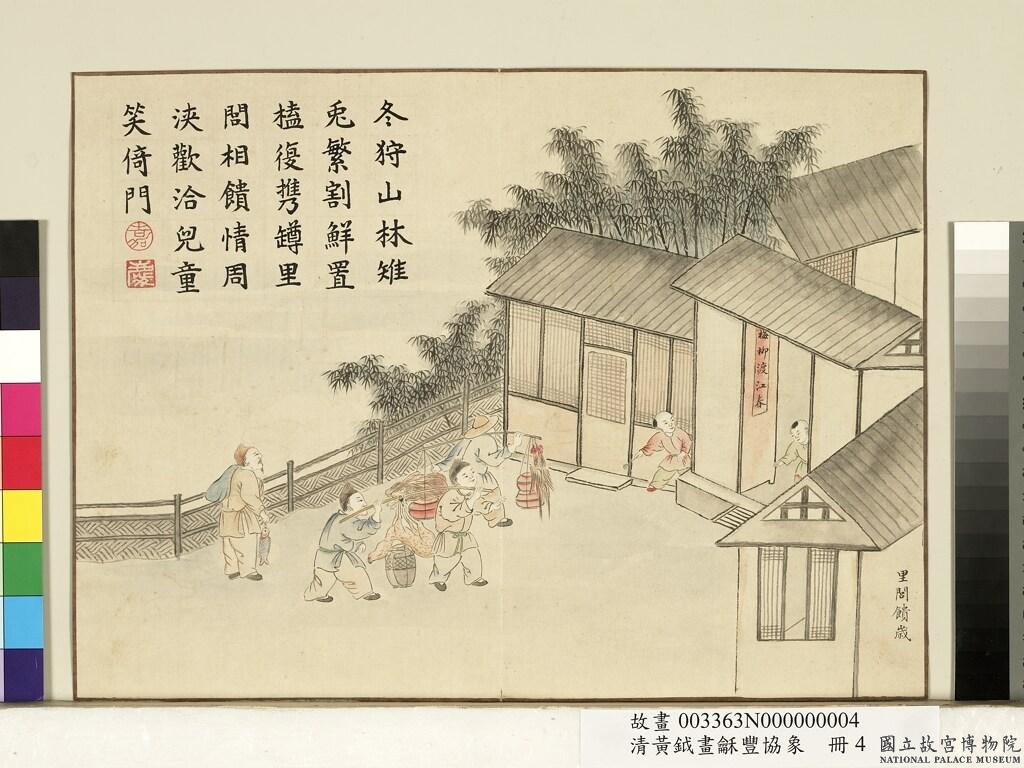 冬狩山林雉
兎繁割鮮置
榼復携罇里
閭相饋情周
浹歡洽兒童
笑倚門
嘉
慶
梅柳渡江春
里閭饋歲
故畫 003363N000000004
清黃鉞畫龢豐協象　冊 4
國立故宮博物院
NATIONAL PALACE MUSEUM